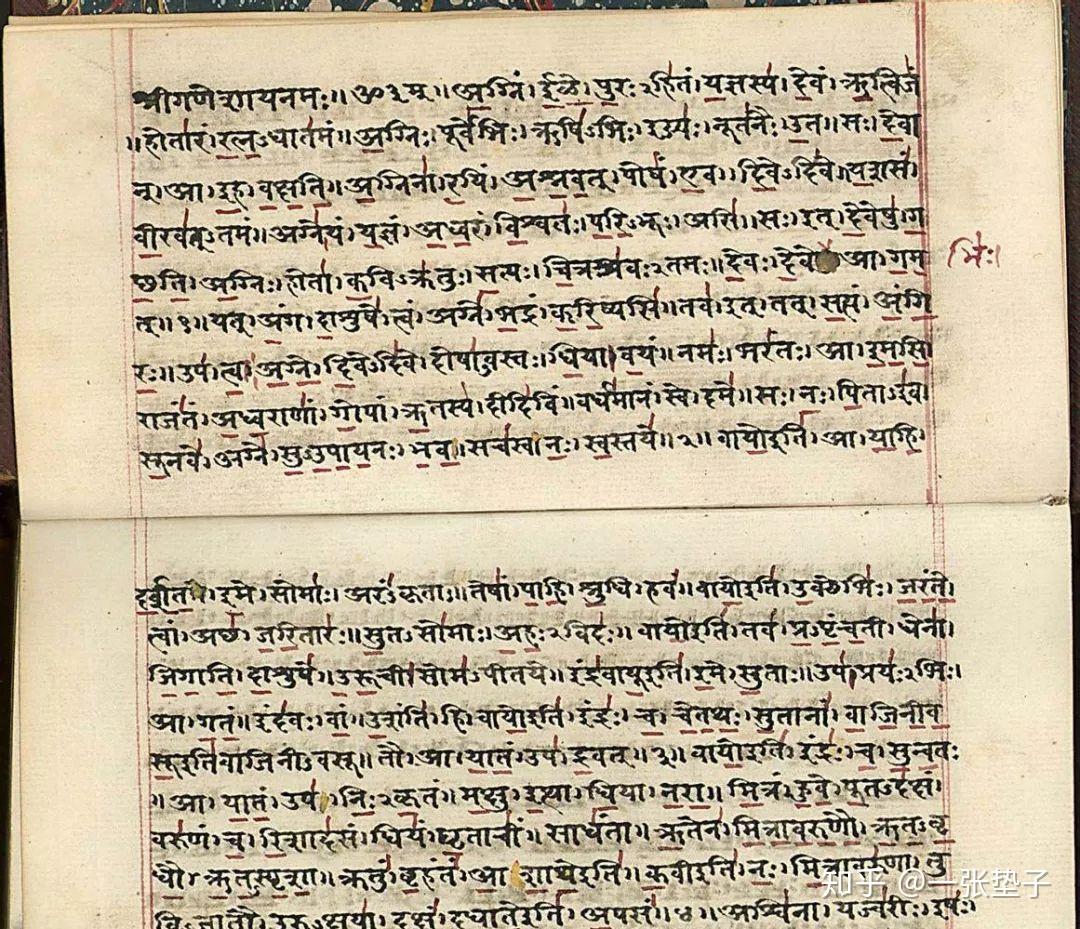 श्रीगणेशायनमः॥ॐ३म्॥ अग्निं। ईळे। पुरःऽहितं। यज्ञस्य। देवं। ऋत्विजं
॥होतारं। रत्नऽधातमं॥ अग्निः। पूर्वेभिः। ऋषिऽभिः। ईड्यः। नूतनैः। उत॥ सः। देवा
न्। आ। इह। वक्षति॥ अग्निना। रयिं। अश्नवत्। पोषं। एव। दिवेऽदिवे॥ यशसं।
वीरवत्ऽतमं॥ अग्ने। यं। यज्ञं। अध्वरं। विश्वतः। परिऽभूः। असि॥ सः। इत्। देवेषु। ग
च्छति। अग्निः। होता। कविऽक्रतुः। सत्यः। चित्रश्रवःऽतमः॥ देवः। देवे आ। गम
भिः।
त्॥१॥ यत्। अंग। दाशुषे। त्वं। अग्ने। भद्रं। करिष्यसि॥ तव। इत्। तत्। सत्यं। अंगि
रः॥ उप। त्वा। अग्ने। दिवेऽदिवे। दोषाऽवस्तः। धिया। वयं॥ नमः। भरंतः। आ। इमसि॥
राजंतं। अध्वराणां। गोपां। ऋतस्य। दीदिविं॥ वर्धमानं। स्वे। दमे॥ सः। नः। पिताऽइव।
सूनवे। अग्ने। सुऽउपायनः। भव॥ सचस्व। नः। स्वस्तये॥२॥ वायोइति। आ। याहि।
दर्शत। इमे। सोमाः। अरंऽकृताः॥ तेषां। पाहि। श्रुधि। हवं॥ वायोइति। उक्थेभिः। जरंते।
त्वां। अच्छ। जरितारः॥ सुतऽसोमाः। अहःऽविदः॥ वायोइति। तव। प्रऽपृंचती। धेना।
जिगाति। दाशुषे॥ उरूची। सोमऽपीतये॥ इंद्रवायूइति। इमे। सुताः॥ उप। प्रयःऽभिः।
आ। गतं॥ इंदवः। वां। उशंति। हि॥ वायोइति। इंद्रः। च। चेतथः। सुतानां। वाजिनीव
सूइतिवाजिनीऽवसू॥ तौ। आ। यातं। उप। द्रवत्॥३॥ वायोइति। इंद्रः। च। सुन्वतः
॥ आ। यातं। उप। निःऽकृतं॥ मक्षु। इत्था। धिया। नरा॥ मित्रं। हुवे। पूतऽदक्षं।
वरुणं। च। रिशादसं॥ धियं। घृताचीं। साधंता॥ ऋतेन। मित्रावरुणौ। ऋतऽवृ
धौ। ऋतऽस्पृशा॥ क्रतुं। बृहंतं। आशाथेइति॥ कवीइति। नः। मित्रावरुणा। तु
विऽजातौ। उरुऽक्षया॥ दक्षं। दधातेइति। अपसं॥४॥ अश्विना। यज्वरीः। इषः।
知乎 @一张垫子